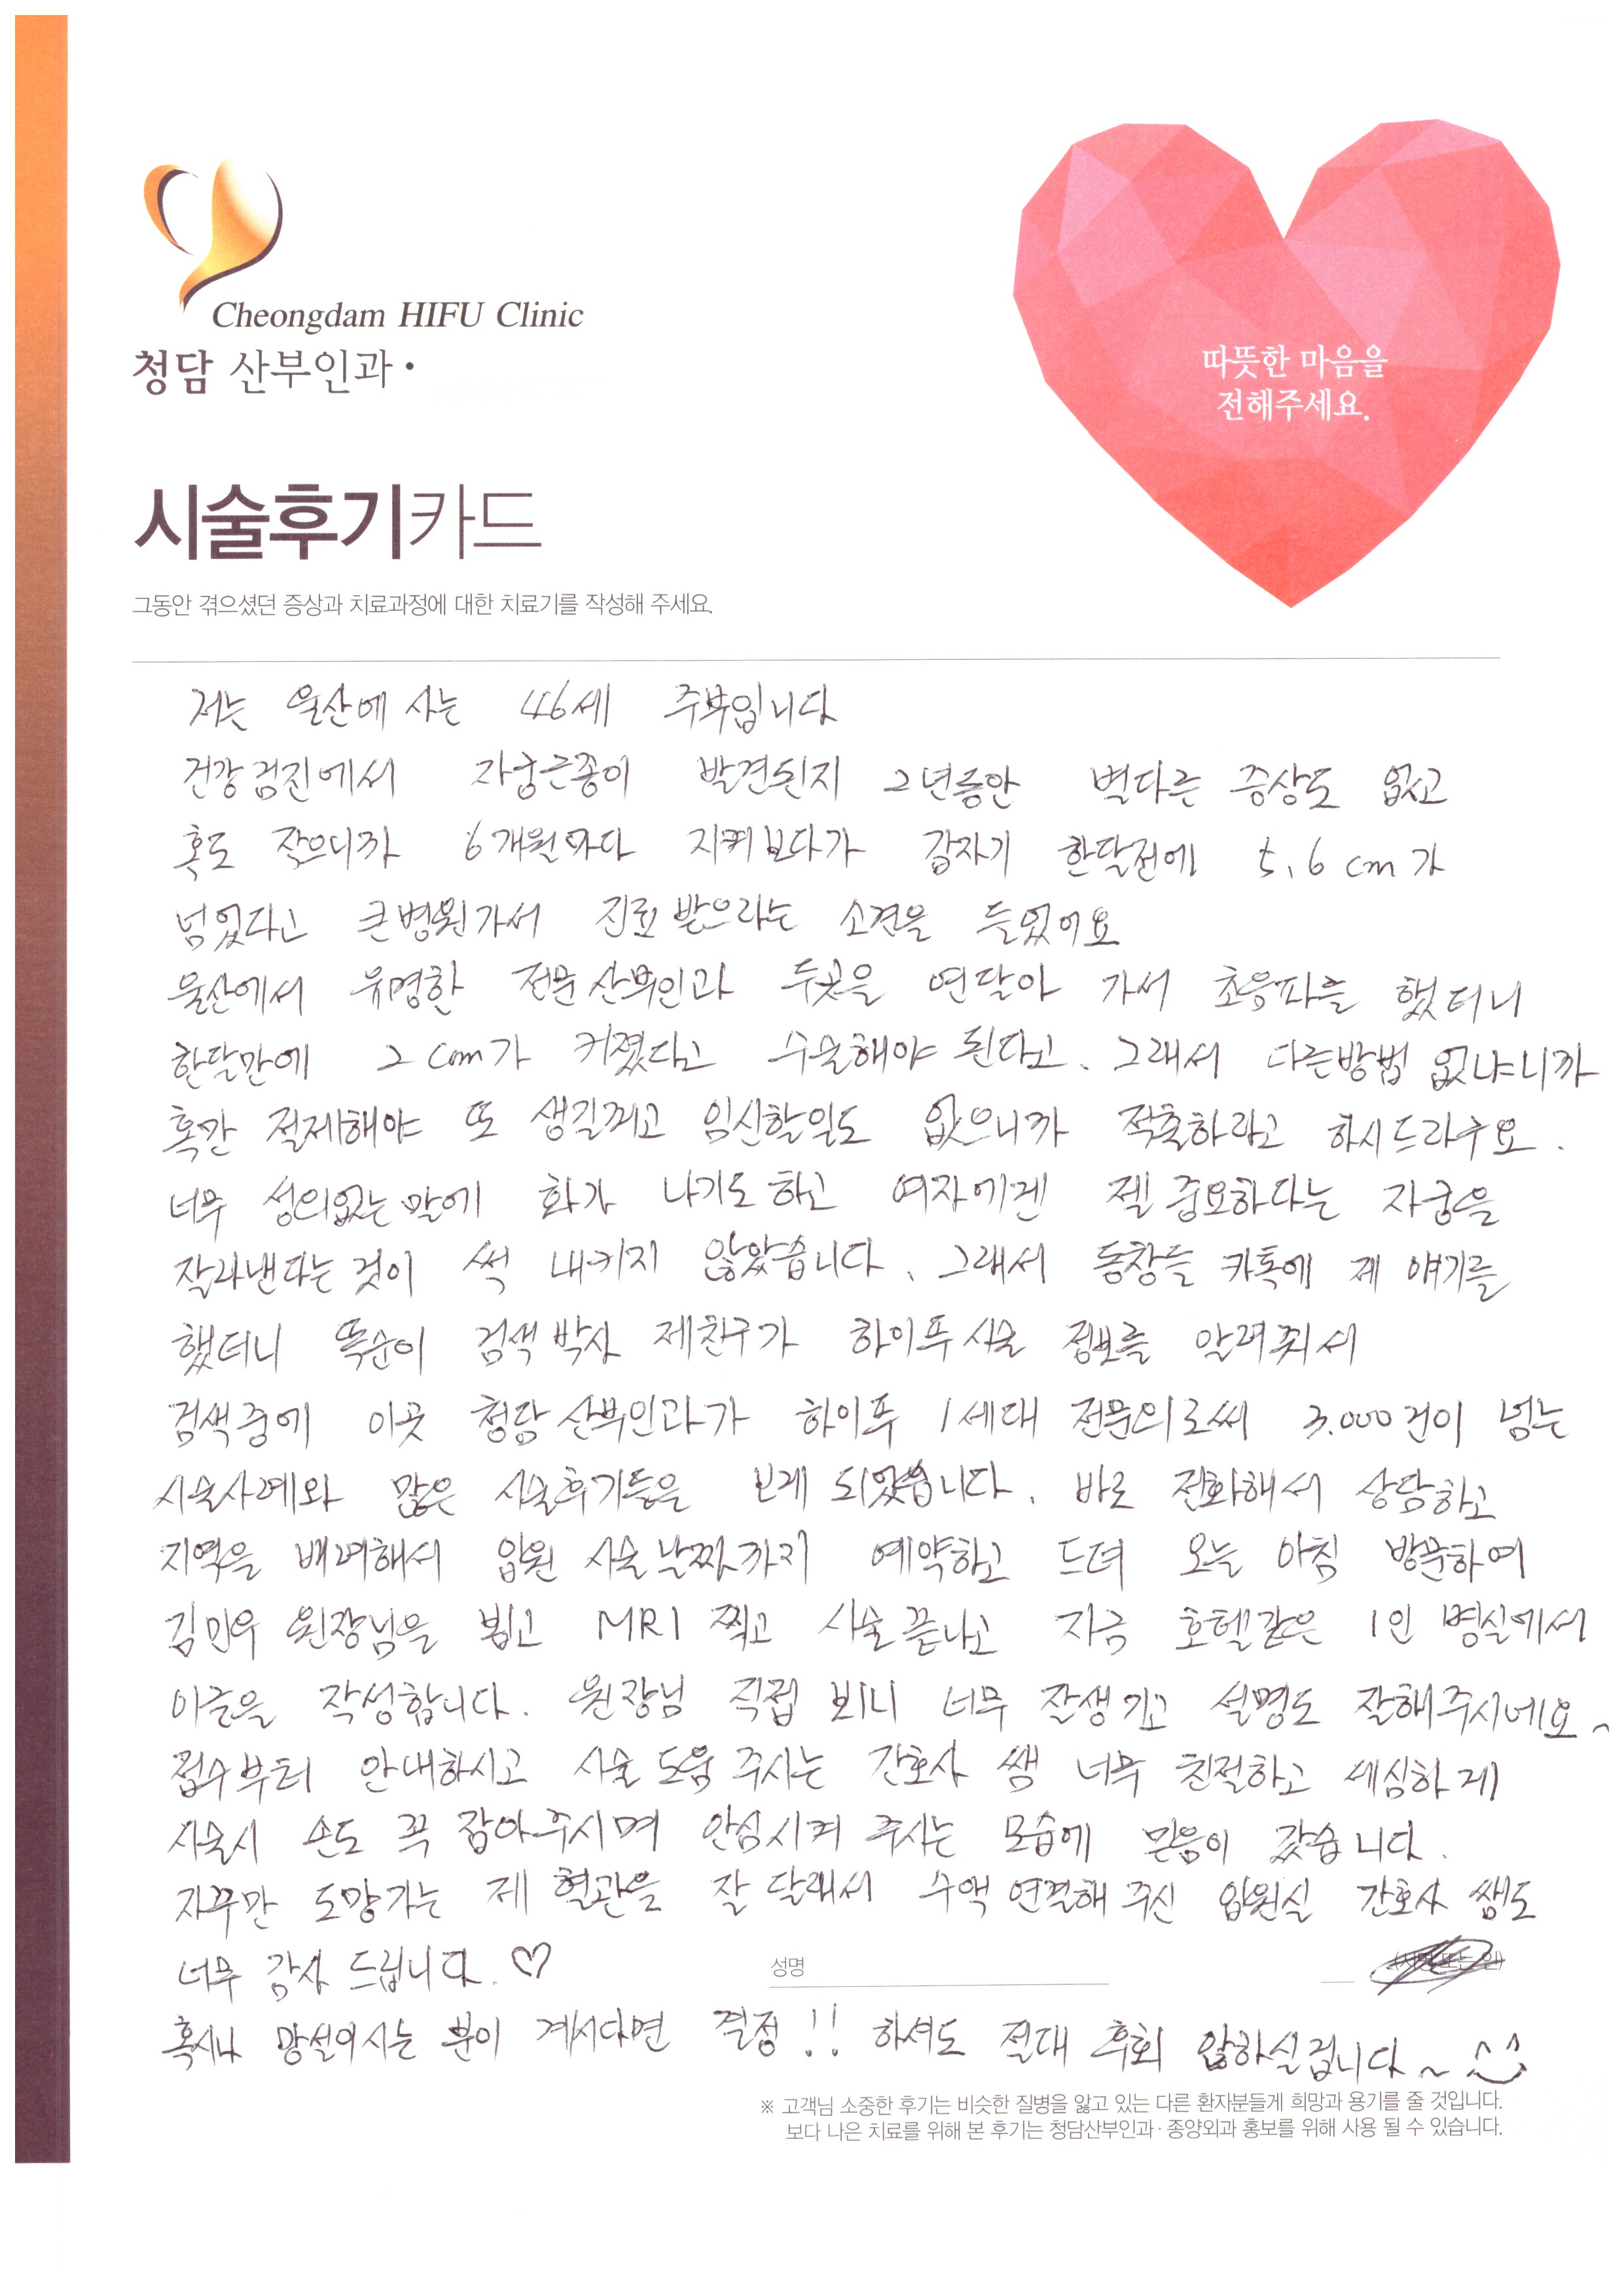 Cheongdam HIFU Clinic
청담 산부인과·
따뜻한 마음을
전해주세요.
시술후기카드
그동안 겪으셨던 증상과 치료과정에 대한 치료기를 작성해 주세요.
저는 울산에 사는 46세 주부입니다
건강검진에서 자궁근종이 발견된지 2년동안 별다른 증상도 없고
혹도 작으니까 6개월마다 지켜보다가 갑자기 한달전에 5.6cm가
넘었다고 큰병원가서 진료받으라는 소견을 들었어요
울산에서 유명한 전문산부인과 두곳을 연달아 가서 초음파를 했더니
한달만에 2cm가 커졌다고 수술해야 된다고. 그래서 다른방법 없냐니까
혹만 절제해야 또 생길꺼고 임신할일도 없으니까 적출하라고 하시드라구요.
너무 성의없는 말에 화가 나기도 하고 여자에겐 젤 중요하다는 자궁을
잘라낸다는 것이 썩 내키지 않았습니다. 그래서 동창들 카톡에 제 얘기를
했더니 똑순이 검색박사 제친구가 하이푸시술 정보를 알려줘서
검색중에 이곳 청담산부인과가 하이푸 1세대 전문의로써 3.000건이 넘는
시술사례와 많은 시술후기들을 보게 되었습니다. 바로 전화해서 상담하고
지역을 배려해서 입원 시술날짜까지 예약하고 드뎌 오늘 아침 방문하여
김민우 원장님을 뵙고 MRI 찍고 시술끝나고 지금 호텔같은 1인 병실에서
이글을 작성합니다. 원장님 직접 뵈니 너무 잘생기고 설명도 잘해주시네요~
접수부터 안내하시고 시술도움 주시는 간호사 쌤 너무 친절하고 세심하게
시술시 손도 꼭 잡아주시며 안심시켜 주시는 모습에 믿음이 갔습니다.
자꾸만 도망가는 제 혈관을 잘 달래서 수액 연결해 주신 입원실 간호사 쌤도
너무 감사 드립니다. ♡
성명
혹시나 망설이시는 분이 계시다면 결정!! 하셔도 절대 후회 않하실겁니다~ ^^
※ 고객님 소중한 후기는 비슷한 질병을 앓고 있는 다른 환자분들게 희망과 용기를 줄 것입니다.
보다 나은 치료를 위해 본 후기는 청담산부인과·종양외과 홍보를 위해 사용 될 수 있습니다.